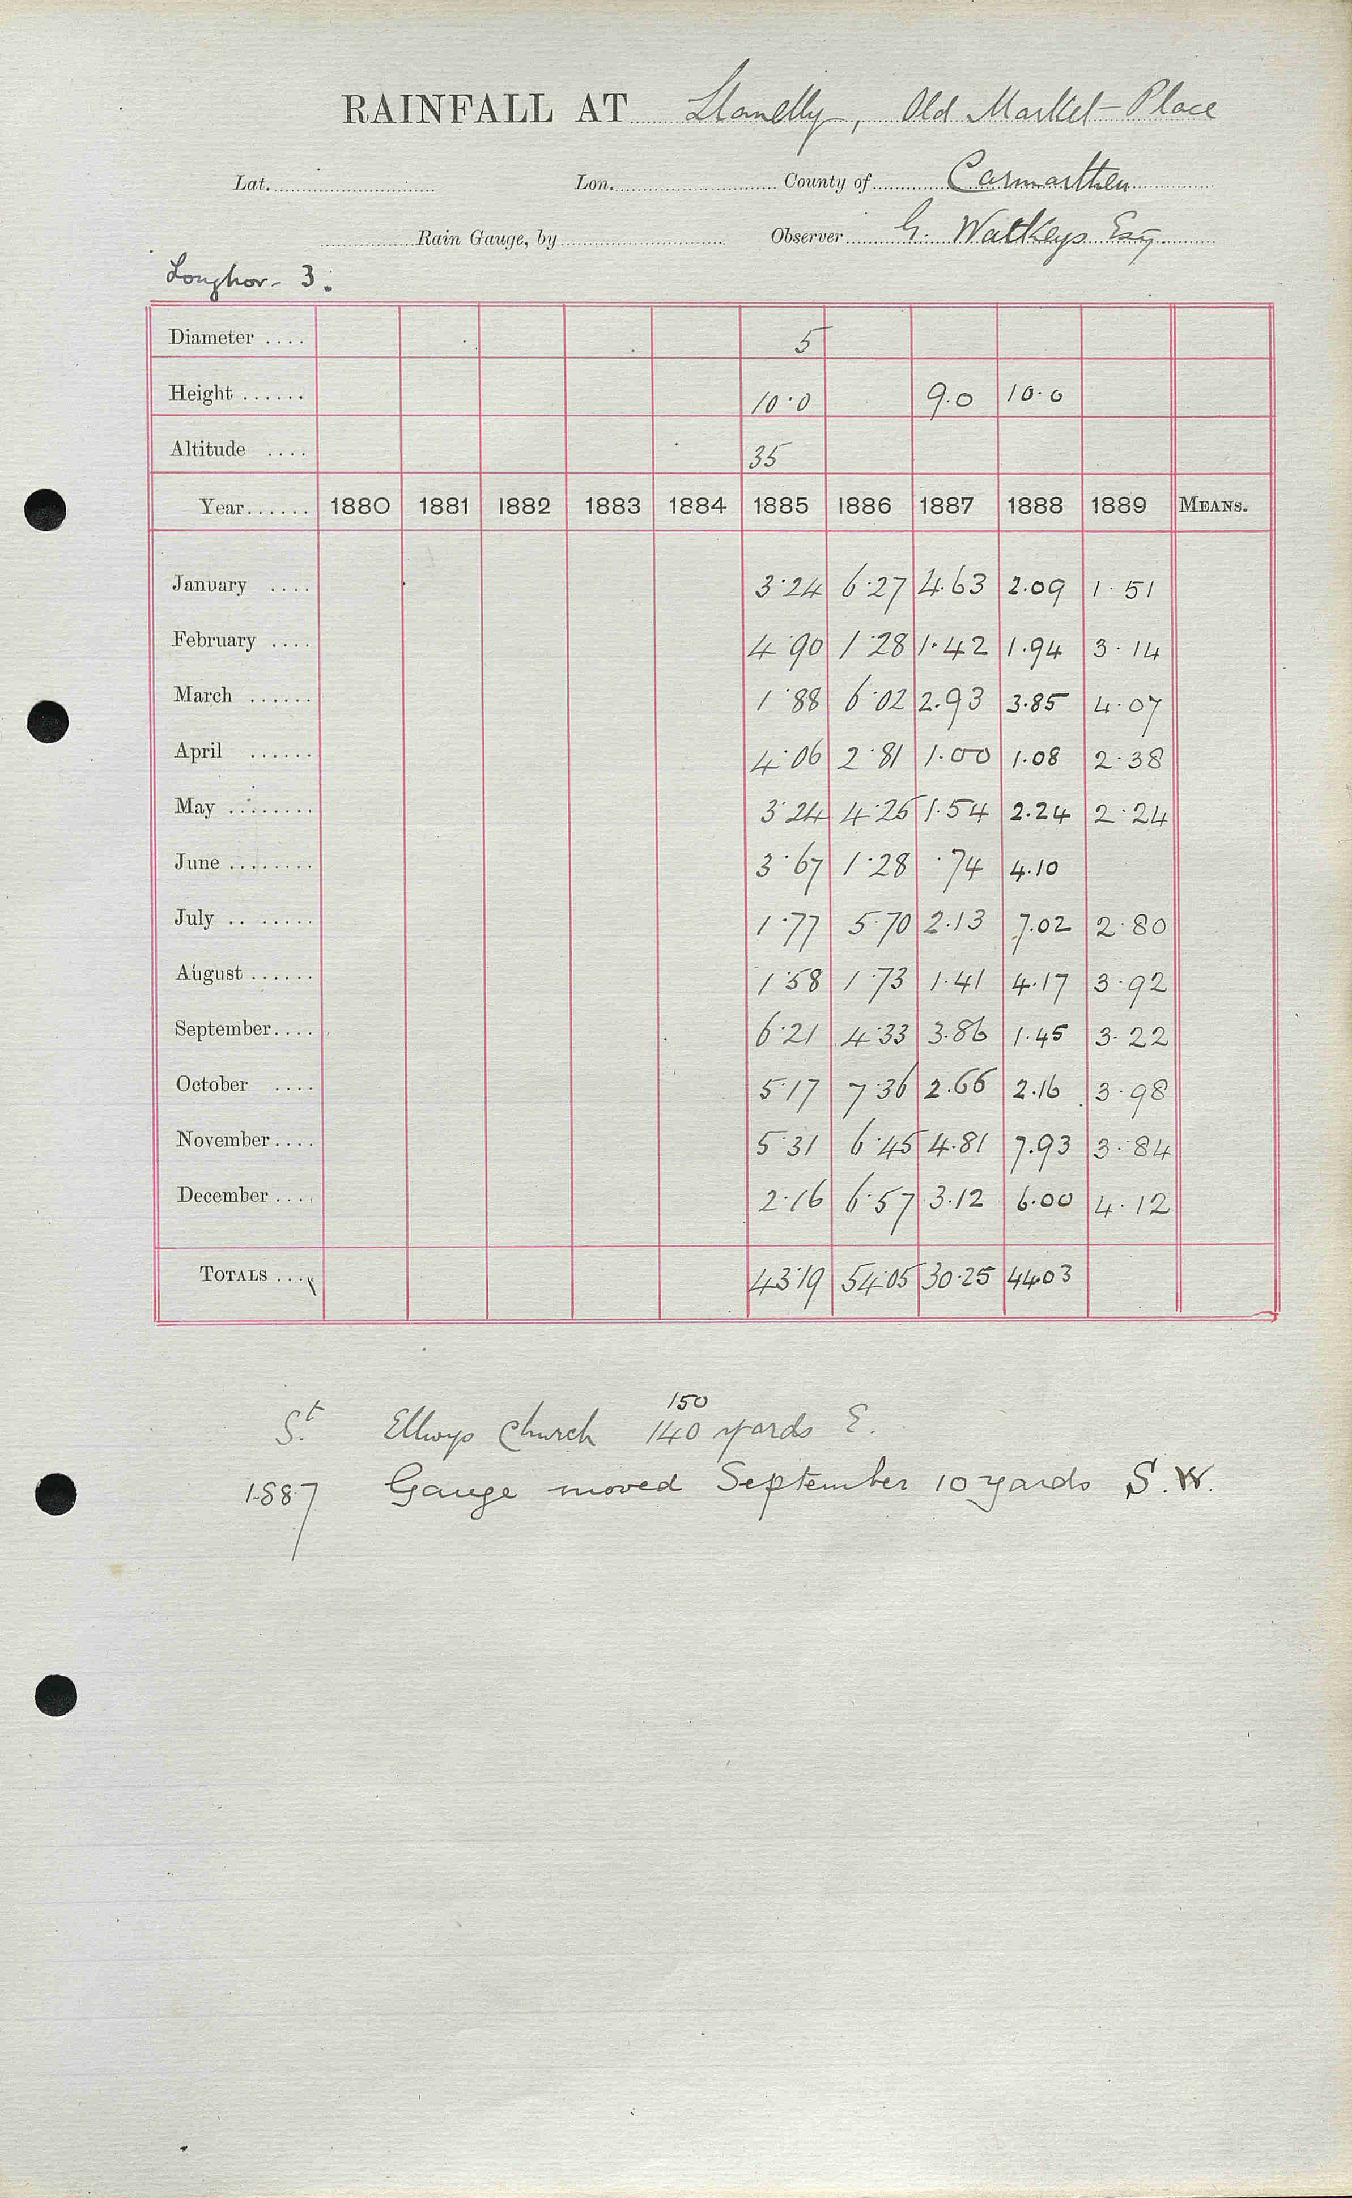 RAINFALL AT Llanelly, Old Market Place
Lat. Lon. County of Carmarthen
Rain Gauge, by Observer G. Watkeys Esq
Loughor - 3.
Diameter .... 5
Height ...... 10.0 9.0 10.0
Altitude .... 35
Year...... 1880 1881 1882 1883 1884 1885 1886 1887 1888 1889 MEANS.
January .... 3.24 6.27 4.63 2.09 1.51
February .... 4.90 1.28 1.42 1.94 3.14
March ...... 1.88 6.02 2.93 3.85 4.07
April ...... 4.06 2.81 1.00 1.08 2.38
May ........ 3.24 4.25 1.54 2.24 2.24
June ........ 3.67 1.28 .74 4.10
July ........ 1.77 5.70 2.13 7.02 2.80
August ...... 1.58 1.73 1.41 4.17 3.92
September.... 6.21 4.33 3.86 1.45 3.22
October .... 5.17 7.36 2.66 2.16 3.98
November.... 5.31 6.45 4.81 7.93 3.84
December .... 2.16 6.57 3.12 6.00 4.12
TOTALS .... 43.19 54.05 30.25 44.03
150
St. Ellwys Church 140 yards E.
1887 Gauge moved September 10 yards S.W.